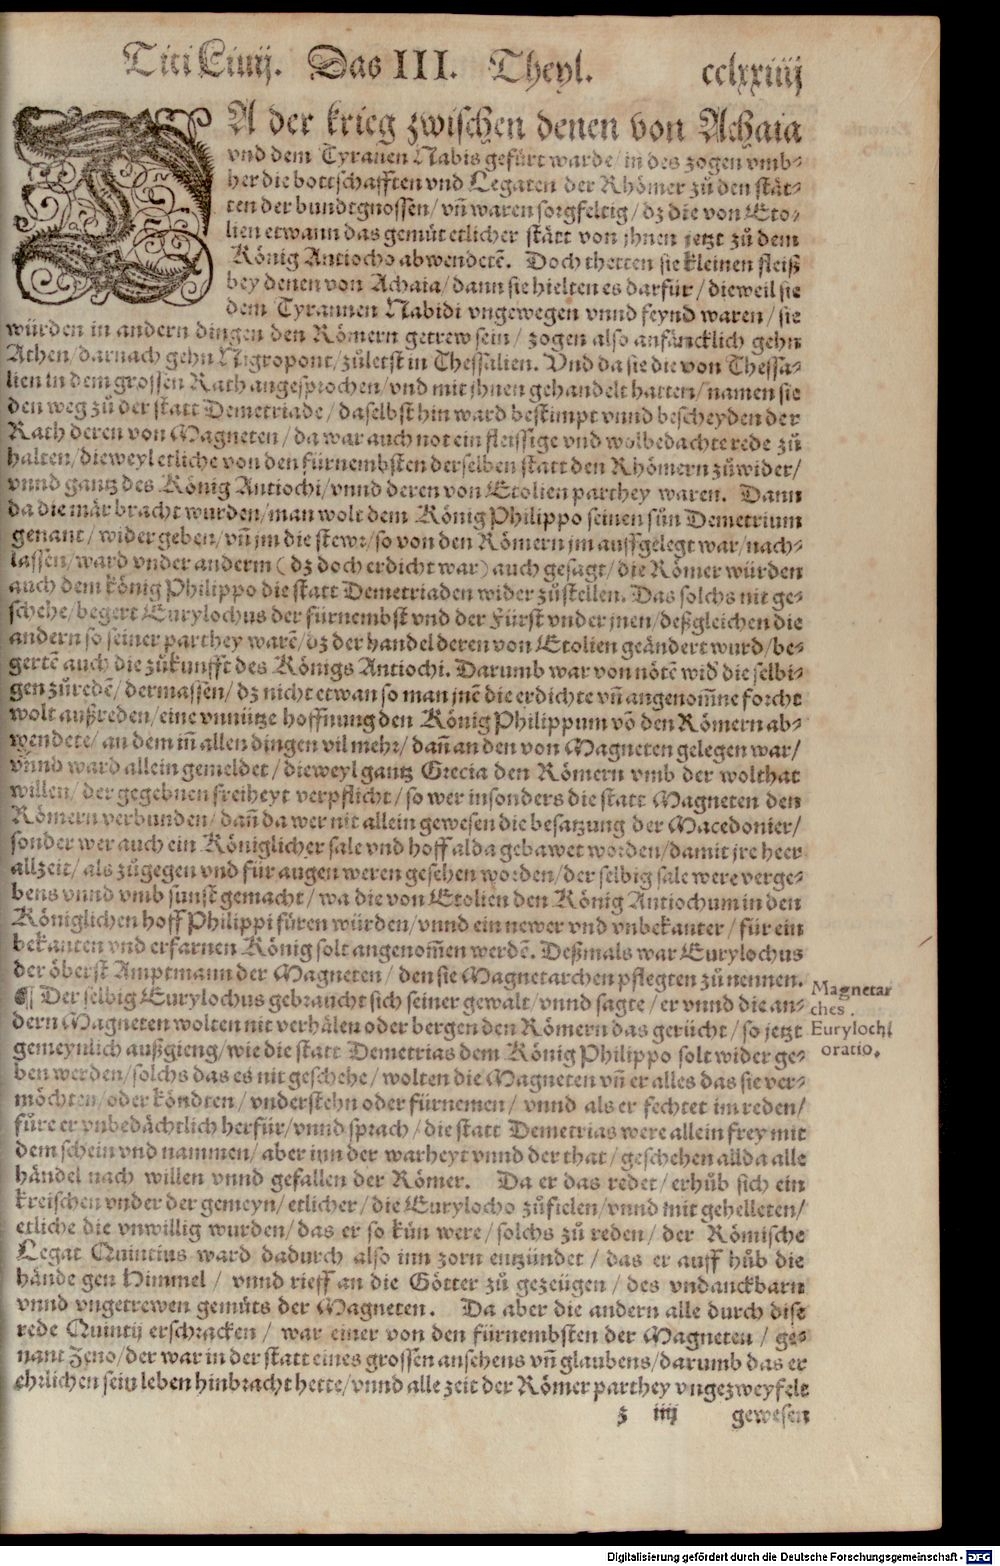 Titi Liuij. Das III. Theyl. cclxxiiij
DA der krieg zwischen denen von Achaia
vnd dem Tyrannen Nabis gefürt warde/ in des zogen vmb-
her die bottschafften vnd Legaten der Rhömer zů den stät-
ten der bundtgnossen/ vñ waren sorgfeltig/ dz die von Eto-
lien etwann das gemüt etlicher stätt von jhnen jetzt zů dem
König Antiocho abwendetē. Doch thetten sie kleinen fleiß
bey denen von Achaia/ dann sie hielten es darfür/ dieweil sie
dem Tyrannen Nabidi vngewegen vnnd feynd waren/ sie
würden in andern dingen den Römern getrew sein/ zogen also anfäncklich gehn
Athen/ darnach gehn Nigropont/ zůletst in Thessalien. Vnd da sie die von Thessa-
lien in dem grossen Rath angesprochen/ vnd mit jhnen gehandelt hatten/ namen sie
den weg zů der statt Demetriade/ daselbst hin ward bestimpt vnnd bescheyden der
Rath deren von Magneten/ da war auch not ein fleissige vnd wolbedachte rede zů
halten/ dieweyl etliche von den fürnembsten derselben statt den Rhömern zůwider/
vnnd gantz des König Antiochi/ vnnd deren von Etolien parthey waren. Dann
da die mär bracht wurden/ man wolt dem König Philippo seinen sün Demetrium
genant/ wider geben/ vñ jm die stewr/ so von den Römern jm auffgelegt war/ nach-
lassen/ ward vnder anderm ( dz doch erdicht war) auch gesagt/ die Römer würden
auch dem könig Philippo die statt Demetriaden wider zůstellen. Das solchs nit ge-
schehe/ begert Eurylochus der fürnembst vnd der Fürst vnder jnen/ deßgleichen die
andern so seiner parthey warē/ dz der handel deren von Etolien geändert wurd/ be-
gertē auch die zůkunfft des Königs Antiochi. Darumb war von nötē wið die selbi-
gen zůredē/ dermassen/ dz nicht etwan so man jnē die erdichte vñ angenom̃ne forcht
wolt außreden/ eine vnnütze hoffnung den König Philippum vō den Römern ab-
wendete/ an dem iñ allen dingen vil mehr/ dañ an den von Magneten gelegen war/
vnnd ward allein gemeldet/ dieweyl gantz Grecia den Römern vmb der wolthat
willen/ der gegebnen freiheyt verpflicht/ so wer insonders die statt Magneten den
Römern verbunden/ dañ da wer nit allein gewesen die besatzung der Macedonier/
sonder wer auch ein Königlicher sale vnd hoff alda gebawet worden/ damit jre heer
allzeit/ als zůgegen vnd für augen weren gesehen worden/ der selbig sale were verge-
bens vnnd vmb sunst gemacht/ wa die von Etolien den König Antiochum in den
Königlichen hoff Philippi füren würden/ vnnd ein newer vnd vnbekanter/ für ein
bekanten vnd erfarnen König solt angenom̃en werdē. Deßmals war Eurylochus
der öberst Amptmann der Magneten/ den sie Magnetarchen pflegten zů nennen.
¶ Der selbig Eurylochus gebraucht sich seiner gewalt/ vnnd sagte/ er vnnd die an-
dern Magneten wolten nit verhälen oder bergen den Römern das gerücht/ so jetzt
gemeynlich außgieng/ wie die statt Demetrias dem König Philippo solt wider ge-
ben werden/ solchs das es nit geschehe/ wolten die Magneten vñ er alles das sie ver-
möchten/ oder köndten/ vnderstehn oder fürnemen/ vnnd als er fechtet im reden/
fůre er vnbedächtlich herfür/ vnnd sprach/ die statt Demetrias were allein frey mit
dem schein vnd nammen/ aber inn der warheyt vnnd der that/ geschehen allda alle
händel nach willen vnnd gefallen der Römer. Da er das redet/ erhůb sich ein
kreischen vnder der gemeyn/ etlicher/ die Eurylocho zůfielen/ vnnd mit gehelleten/
etliche die vnwillig wurden/ das er so kün were/ solchs zů reden/ der Römische
Legat Quintius ward dadurch also inn zorn entzündet/ das er auff hůb die
hände gen Himmel/ vnnd rieff an die Götter zů gezeügen/ des vndanckbarn
vnnd vngetrewen gemüts der Magneten. Da aber die andern alle durch dise
rede Quintij erschracken/ war einer von den fürnembsten der Magneten/ ge-
nant Zeno/ der war in der statt eines grossen ansehens vñ glaubens/ darumb das er
ehrlichen sein leben hinbracht hette/ vnnd alle zeit der Römer parthey vngezweyfelt
z iiij gewesen
Magnetar
ches.
Eurylochi
oratio.
Digitalisierung gefördert durch die Deutsche Forschungsgemeinschaft - DFG